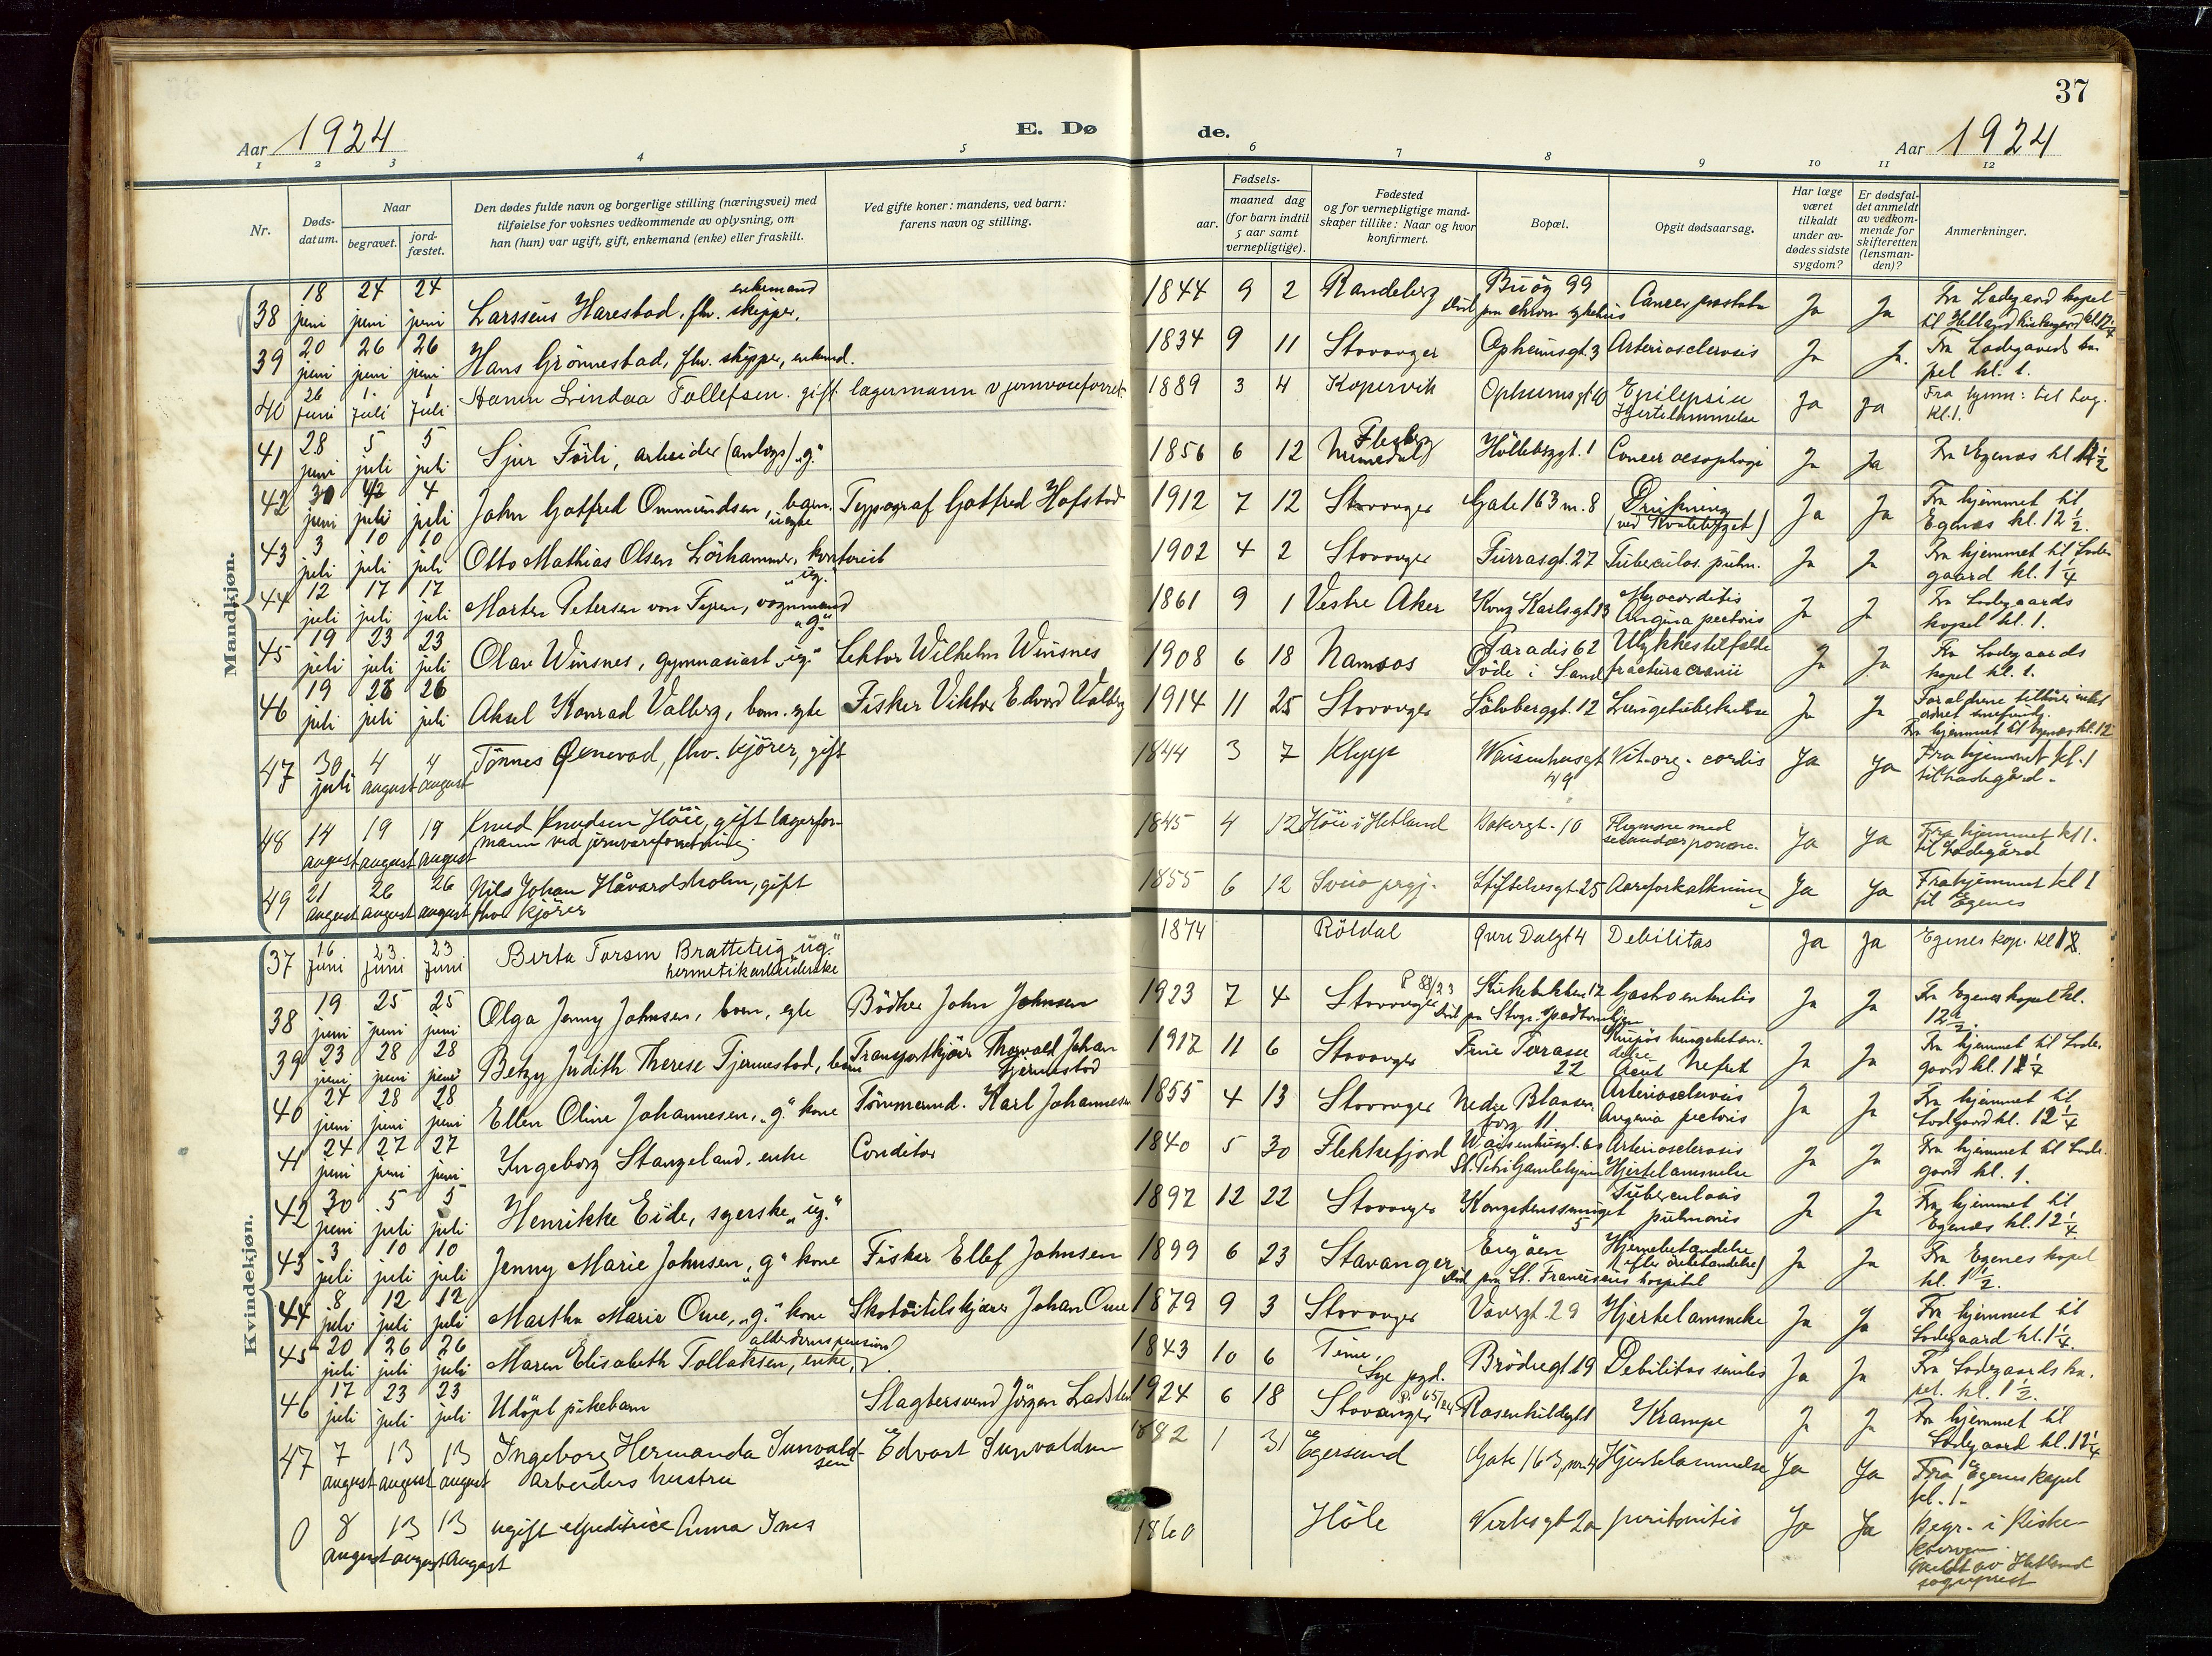 37
Aar 1924
E. Døde.
Aar 1924
1 2 3 4 5 6 7 8 9 10 11 12
Nr.
Dødsdatum.
Naar
begravet.
jordfæstet.
Den dødes fulde navn og borgerlige stilling (næringsvei) med
tilføielse for voksnes vedkommende av oplysning, om
han (hun) var ugift, gift, enkemand (enke) eller fraskilt.
Ved gifte koner: mandens, ved barn:
farens navn og stilling.
Fødsels-
aar.
maaned dag
(for barn indtil
5 aar samt
vernepligtige).
Fødested
og for vernepligtige mand-
skaper tillike: Naar og hvor
konfirmert.
Bopæl.
Opgit dødsaarsag.
Har læge
været
tilkaldt
under av-
dødes sidste
sygdom?
Er dødsfal-
det anmeldt
av vedkom-
mende for
skifteretten
(lensman-
den)?
Anmerkninger.
Mandkjøn.
38 18 juni 24 juni 24 juni Larsseus Harestad, fhv. skipper, enkemand 1844 9 2 Randeberg Buøy 99 Cancer prostata Ja Ja Fra Ladegaard kapel
39 20 juni 26 juni 26 juni Hans Grönnestad, fhv. skipper, enkemd. 1834 9 11 Stavanger Opheimsgt. 3 Arteriosclerosis Ja Ja. Fra Ladegaards kapel kl. 1.
40 26 Juni 1. Juli 1 Juli Lindaa Tollefsen. gift. lagermann v jernvareforret. 1889 3 4 Kopervik Opheimsgt 10 Epilepsia Hjertelammelse Ja Ja kl. 1.
41 28 juni 5 juli 5 juli Sjur Förli, arbeider (anlegs) „g." 1856 6 12 Flesberg Numedal Höllebergt. 1 Cancer oesophagi Ja Ja Fra Egenæs kl.
42 30 juni juli 4 juli John Gotfred Ommundsen, barn, uegte Typograf Gotfred Hofstad 1912 7 12 Stavanger Gate 163 m. 8 Drukning (ved Kvaleberget) Ja Ja Fra hjemmet til Egenæs kl. 12 1/2.
43 3 juli 10 juli 10 juli Otto Mathias Olsen Lörhammer, kontorist „ug." 1902 4 2 Stavanger Furrasgt. 27 Tuberculos. pulm. Ja Ja Fra hjemmet til Lodegaard kl. 1 1/4
44 12 juli 17 juli 17 juli Morten Petersen von Fyren, vognmand „g." 1861 9 1 Vestre Aker Kong Karlsgt 13 Myocarditis Angina pectoris Ja Ja Fra Lodegaards kapel kl. 1.
45 19 juli 23 juli 23 juli Olav Winsnes, gymnasiast „ug." Lektor Wilhelm Winsnes 1908 6 18 Namsos Paradis 62 Döde i Sand Ulykkestilfælde fractura cranii Ja Ja Fra Lodegaards kapel kl. 1.
46 19 juli 26 juli 26 juli Aksel Konrad Valberg, barn. egte Fisker Viktor Edvard Valberg 1914 11 25 Stavanger Sölvbergt. 12 Lungetuberkulose Ja Ja Forældrene tilhører intet ordnet samfund. Fra hjemmet til Egenæs kl. 12
47 30 juli 4 august 4 august Tönnes Qvnevad, fhv. kjörer, gift 1844 3 7 Klepp Waisenhusgt 49 Vit. org. cordis Ja Ja Fra hjemmet kl. 1 til Ladegård.
48 14 august 19 august 19 august Knud Knudsen Höie, gift lagerformann ved jernvareforretning 1845 4 12 Höie i Hetland Bakergt. 10 Ja Ja Fra hjemmet kl 1. til Ladegård
49 21 august 26 august 26 august Nils Johan Håvardsholm, gift fhv kjörer 1855 6 12 Sveio prgj. Stiftelsesgt. 25 Aareforkalkning Ja Ja Fra hjemmet kl 1 til Egenes
Kvindekjøn.
37 16 Juni 23 juni 23 Juni Berta Torsen Bratteteig „ug." hermetikarbeiderske 1874 Röldal Övre Dalgt 4 Debilitas Ja Ja Egenes kap. kl
38 19 juni 25 juni 25 juni Olga Jenny Johnsen, barn, egte Bödker John Johnsen 1923 7 4 Stavanger Gastroenteritis Ja Ja Fra Egenes kapel kl. 12 1/2.
39 23 juni 28 juni 28 juni Betzy Judith Therese Tjermestad, barn Transportkjörer Thorvald Johan Tjermestad 1912 11 6 Stavanger Frue Terrasse 22 Krupös lungebetændelse Acut Nefrit Ja Ja Fra hjemmet til Lodegaard kl.
40 24 juni 28 juni 28 juni Ellen Oline Johannesen, „g." kone Tömmermd. Karl Johannesen 1855 4 13 Stavanger Nedre Blaasenborg 11. Arteriosclerosis Angina pectoris Ja Ja Fra hjemmet til Lodegaard kl. 12 1/4
41 24 juni 27 juni 27 juni Ingeborg Stangeland, enke Conditor 1840 5 30 Flekkefjord St. Petri Gamlehjem Arteriosclerosis Hjertelammelse Ja Ja Fra hjemmet til Lodegaard kl. 1.
42 30 juni 5 juli 5 juli Henrikke Eide, syerske „ug." 1897 12 22 Stavanger Kongstenssmuget 5 Tuberculosis pulmonis Ja Ja Fra hjemmet til Egenæs kl. 12 1/4
43 3 juli 10 juli 10 juli Jenny Marie Johnsen, „g" kone Fisker Ellef Johnsen 1899 6 23 Stavanger Engöen Död paa St. Franciscus hospital Hjernebetændelse (efter örebetændelse) Ja Ja Fra Egenes kapel kl. 1 1/2.
44 8 juli 12 juli 12 juli Martha Marie Owe, „g." kone Skotöitilskjærer Johan Owe 1879 9 3 Stavanger Vaversgt. 29 Hjertelammelse Ja Ja Fra hjemmet til Lodegaard kl. 1 1/4.
45 20 juli 26 juli 26 juli Maren Elisabeth Tollaksen, enke, alderdomspension 1843 10 6 Time, Lye pgd. Brödregt 19 Debilitas senilis Ja Ja Fra Lodegaards kapel. kl. 1 1/2.
46 17 juli 23 juli 23 juli Udöpt pikebarn Slagtersvend Jörgen 1924 6 18 Stavanger P. 65/24 Rosenkildegt Krampe Ja Ja Fra hjemmet til Lodegaard kl. 12 1/4
47 7 august 13 august 13 august Ingeborg Hermanda Sunvaldsen arbeiders hustru Edvart Sunvaldsen 1882 1 31 Egersund Gate 163, nr. 4 Hjertelammelse Ja Ja Fra Egenes kapel kl. 1.
0 8 august 13 august 13 august ugift expeditrice Anna Ims 1860 Höle Verksgt 2a peritonitis Ja Ja Begr. i
meldt av Hetland
sogneprest